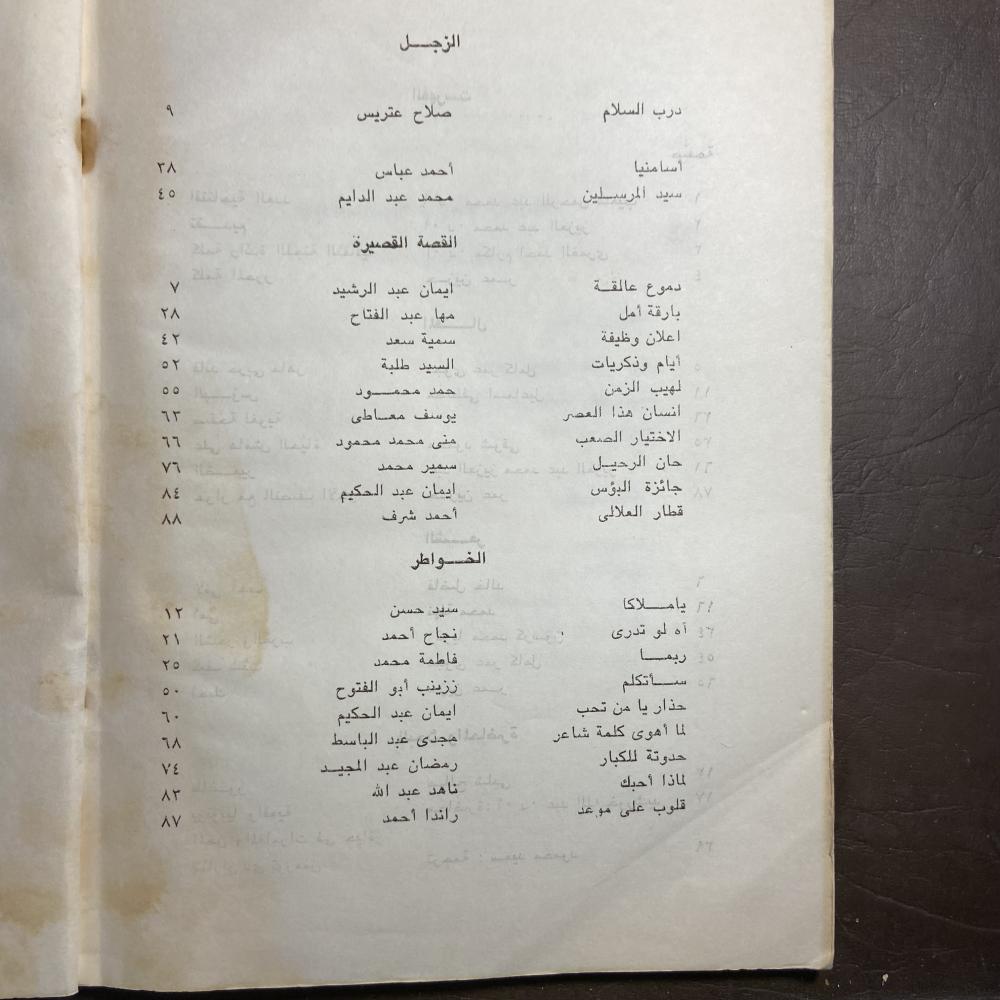 الزجل
درب السلام صلاح عتريس ٩
أسامنيا أحمد عباس ٣٨
سيد المرسلين محمد عبد الدايم ٤٥
القصة القصيرة
دموع عالقة ايمان عبد الرشيد ٧
بارقة أمل مها عبد الفتاح ٢٨
اعلان وظيفة سمية سعد ٤٢
أيام وذكريات السيد طلبة ٥٢
لهيب الزمن حمد محمود ٥٥
انسان هذا العصر يوسف معاطى ٦٣
الاختيار الصعب منى محمد محمود ٦٦
حان الرحيل سمير محمد ٧٦
جائزة البؤس ايمان عبد الحكيم ٨٤
قطار العلالى أحمد شرف ٨٨
الخواطر
ياملاكا سيد حسن ١٢
أه لو تدرى نجاح أحمد ٢١
ربما فاطمة محمد ٢٥
سأتكلم ززينب أبو الفتوح ٥٠
حذار يا من تحب ايمان عبد الحكيم ٦٠
لما أهوى كلمة شاعر مجدى عبد الباسط ٦٨
حدوتة للكبار رمضان عبد المجيد ٧٤
لماذا أحبك ناهد عبد الله ٨٣
قلوب على موعد راندا أحمد ٨٧